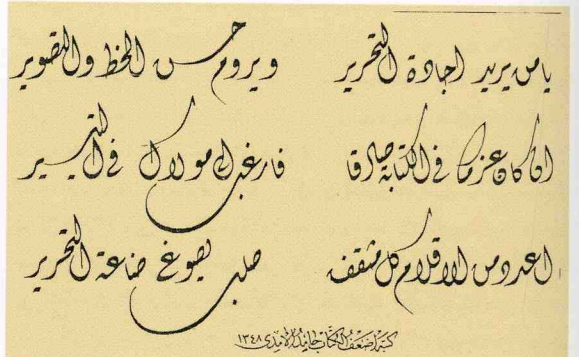 يا من يريد اجادة التحرير ويروم حسن الخط والتصوير
ان كان عزمك في الكتابة صادقا فارغب الى مولاك في التيسير
اعدد من الاقلام كل مثقف صلب يصوغ صناعة التحرير
كتبه اضعف الكتاب حامد الآمدي ١٣٤٨